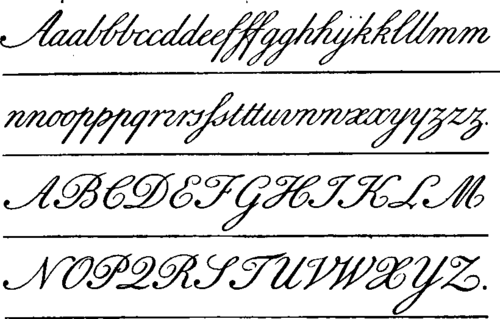 Aaabbbccddeefffgghhijkkllllmm
nnooppppqrrrsfstttuvnnxxyyzzz.
ABCDEFGHIKLM
NOPQRSTUVWXYZ.